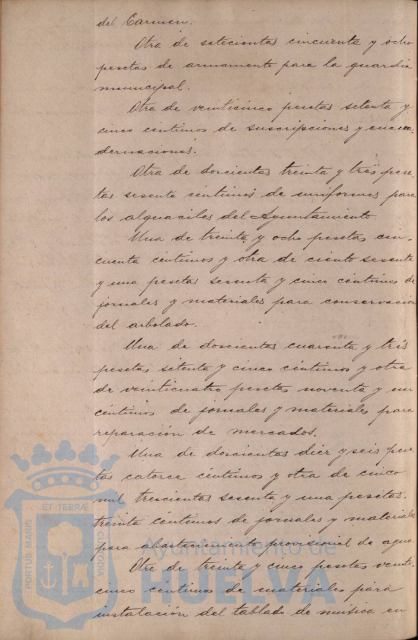 del Carmen.
Otra de setecientas cincuenta y ocho
pesetas de armamento para la guardia
municipal.
Otra de veinticinco pesetas setenta y
cinco centimos de suscripciones y encua
dernaciones.
Otra de doscientas treinta y tres pese
tas sesenta centimos de uniformes para
los alguaciles del Ayuntamiento
Una de treinta y ocho pesetas cin
cuenta centimos y otra de ciento sesenta
y una pesetas sesenta y cinco centimos de
jornales y materiales para conservacion
del arbolado.
Una de doscientas cuarenta y tres
pesetas setenta y cinco centimos y otra
de veinticuatro pesetas noventa y un
centimos de jornales y materiales para
reparación de mercados.
Una de doscientas diez y seis pese
tas catorce centimos y otra de cinco
mil trescientas sesenta y una pesetas
treinta centimos de jornales y materiales
para abastecimiento provisional de agua
Otra de treinta y cinco pesetas veinti
cinco centimos de materiales para
instalación del tablado de musica en
PORTUS MARIS ET TERRAE CUSTODIA
Ayuntamiento de
HUELVA